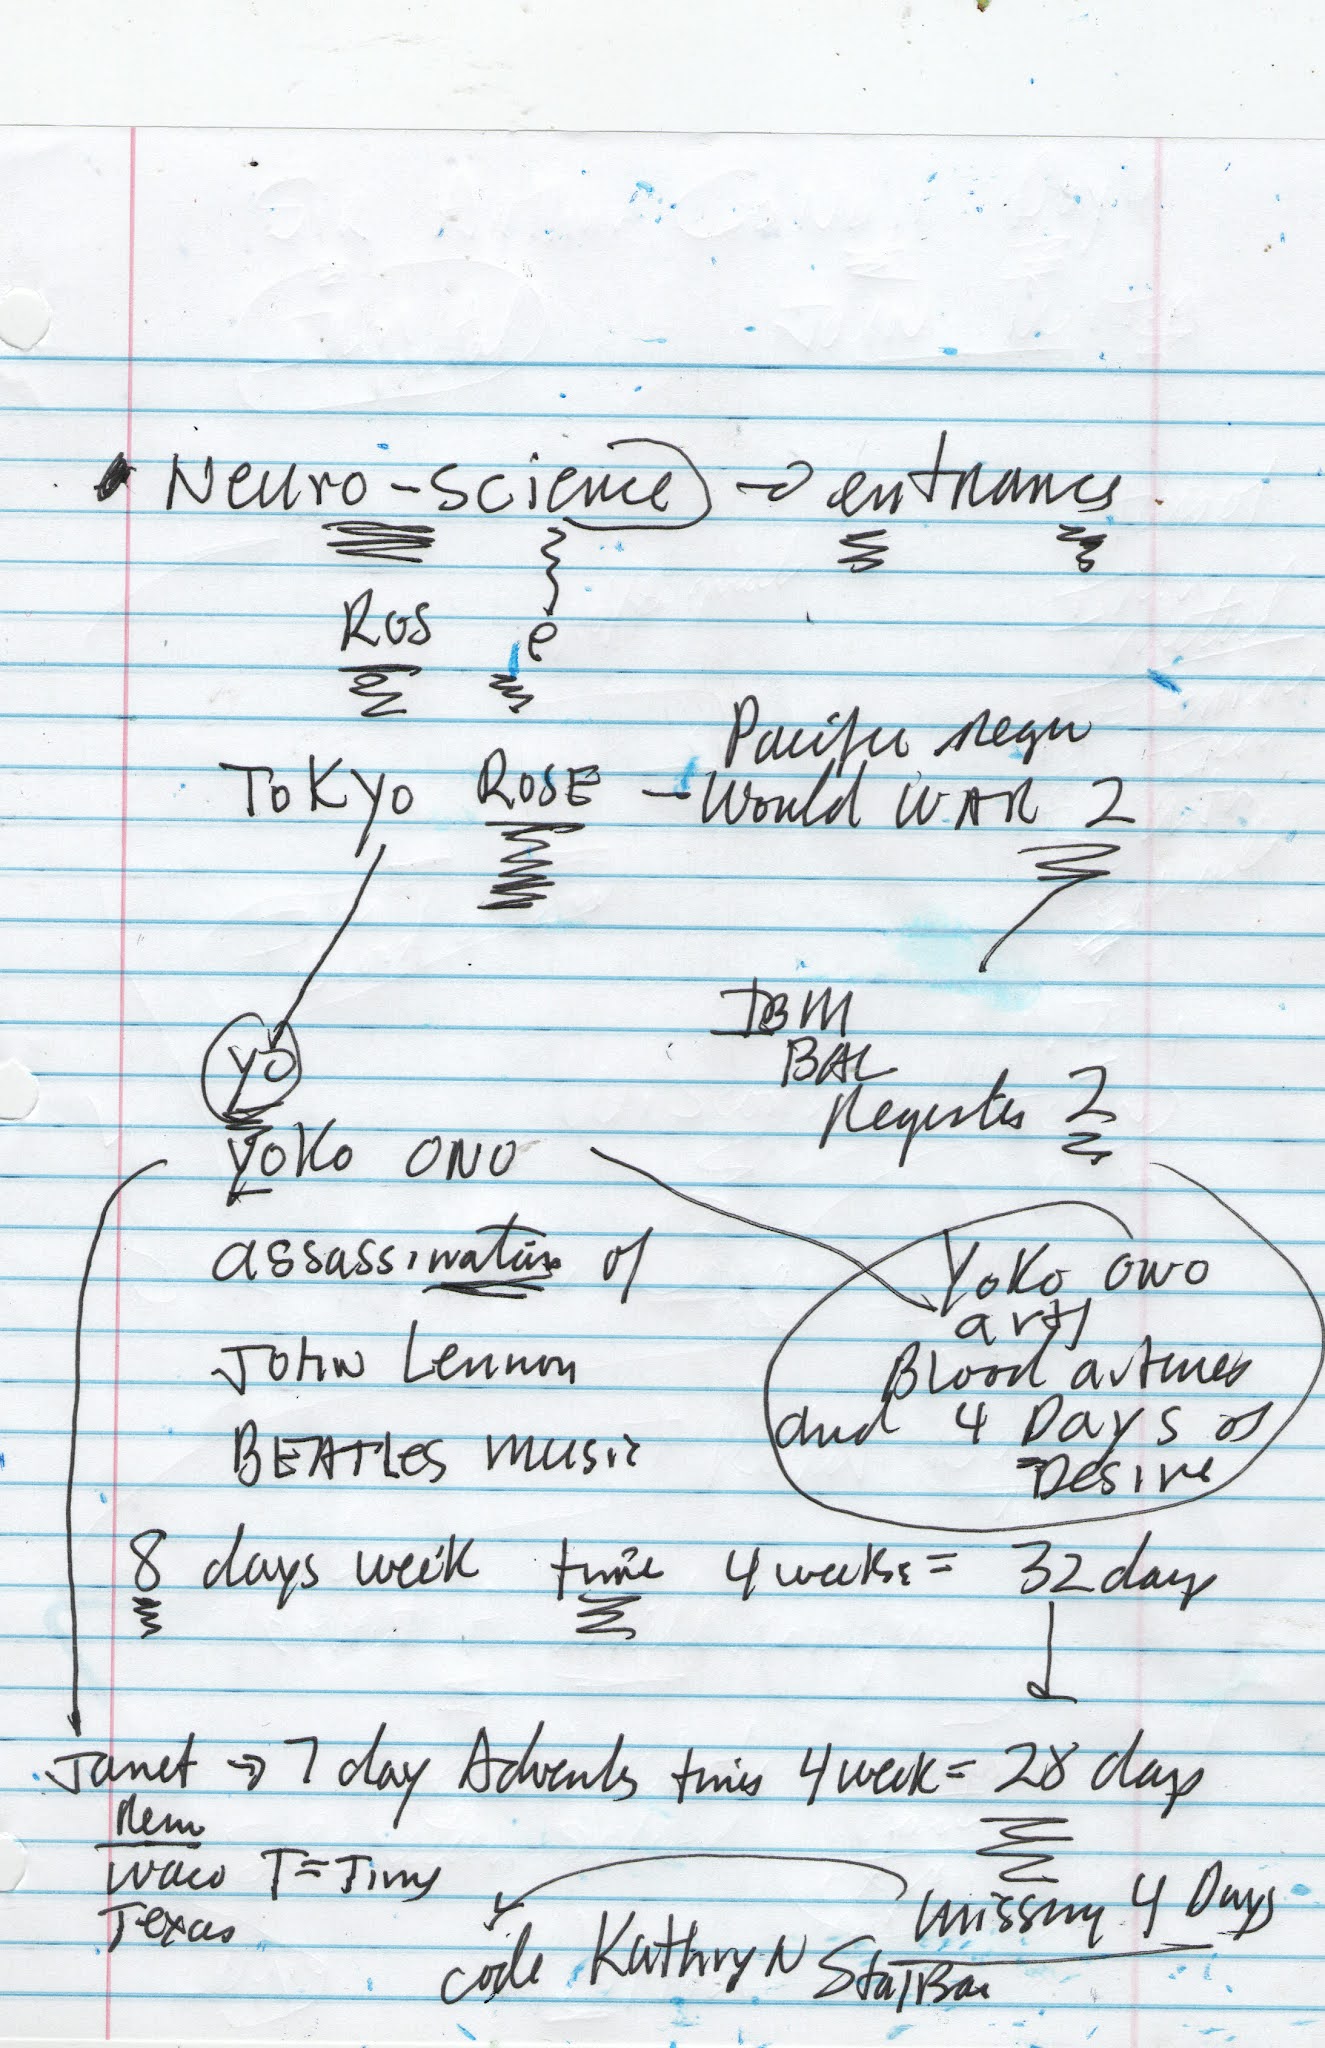 Neuro-science → entrance
Ros e
TOKYO ROSE - Pacific
World WAR 2
yo
IBM
BAL
Register 2
YOKO ONO
assassination of
JOHN Lennon
BEATLES MUSIC
YOKO ONO
art
Blood arteries
and 4 Days of
Desire
8 days week time 4 weeks = 32 days
Janet → 7 day Advents times 4 week = 28 days
Reno
Waco T = Times
Texas
missing 4 Days
code Kathryn